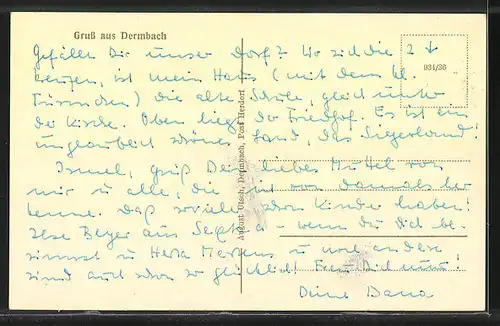 Gruß aus Dermbach
Gefällt Dir unser Dorf? Wo sich die 2 ↓
kreuzen, ist mein Haus (mit dem kl.
Türmchen) die alte Schule, gleich unter
der Kirche. Oben liegt der Friedhof. Es ist ein
unglaublich schönes Land, das Siegerland!
934/36
August Utsch, Dermbach, Post Herdorf
grüß Dein liebes Muttel von
mir u alle, die ich von damals her
kenne. Daß soviele schon Kinder haben!
Ilse Beyer aus wenn du Dich be-
sinnst u Herta Mertens u viele andere
sind auch schon so glücklich! Freu Dich nun!
Deine